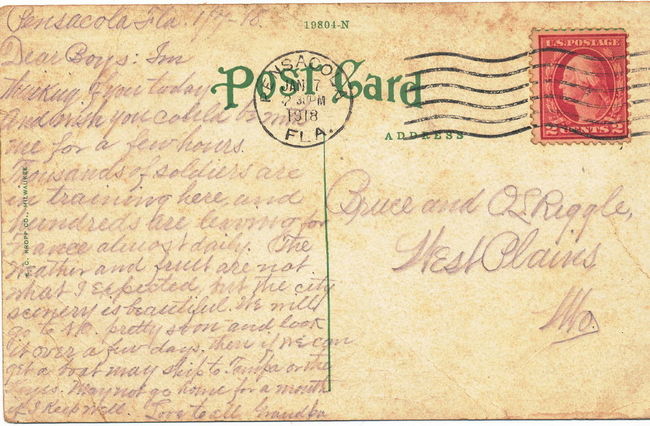 Pensacola Fla. 1/7-18.
19804-N
Dear Boys: Im
thinking of you today
And wish you could be with
me for a few hours.
Thousands of soldiers are
in training here, and
hundreds are leaving for
France almost daily. The
weather and fruit are not
what I expected, but the city
scenery is beautiful. We will
go to pretty soon and look
it over a few days, then if we can
get a boat may skip to Tampa or the
Keys. May not go home for a month
if I keep well. Love to all Grandpa
Post Card
PENSACOLA
JAN 7
2 30 PM
1918
FLA.
U.S. POSTAGE
2 CENTS 2
ADDRESS
Bruce and Riggle,
West Plains
Mo.
KROPP CO., MILWAUKEE